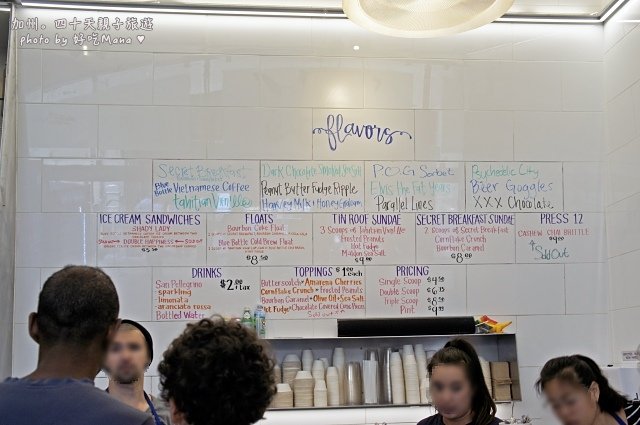 加州。四十天親子旅遊
photo by 好吃Mana ♥
flavors
Secret Breakfast
Blue Bottle Vietnamese Coffee
Tahitian Vanilla
Dark Chocolate Smoked Sea Salt
Peanut Butter Fudge Ripple
Harvey Milk & Honey Grahams
P.O.G Sorbet
Elvis the Fat Years
Parallel Lines
Psychedelic City
Beer Goggles
XXX Chocolate
ICE CREAM SANDWICHES
SHADY LADY
DOUBLE HAPPINESS
FLOATS
Bourbon Coke Float
Blue Bottle Cold Brew Float
$8.50
TIN ROOF SUNDAE
3 Scoops of Tahitian Vanilla
Frosted Peanuts
Hot Fudge
Maldon Sea Salt
SECRET BREAKFAST SUNDAE
2 Scoops of Secret Breakfast
Cornflake Crunch
Bourbon Caramel
PRESS 12
CASHEW CHAI BRITTLE
Sold Out
DRINKS
San Pellegrino
sparkling
limonata
aranciata rossa
Bottled Water
$2 +tax
TOPPINGS $1 Each
Butterscotch • Amarena Cherries
Cornflake Crunch • Frosted Peanuts
Bourbon Caramel • Olive Oil + Sea Salt
Hot Fudge • Chocolate Covered Cone Pieces
Sold out
PRICING
Single Scoop
Double Scoop
Triple Scoop
Pint